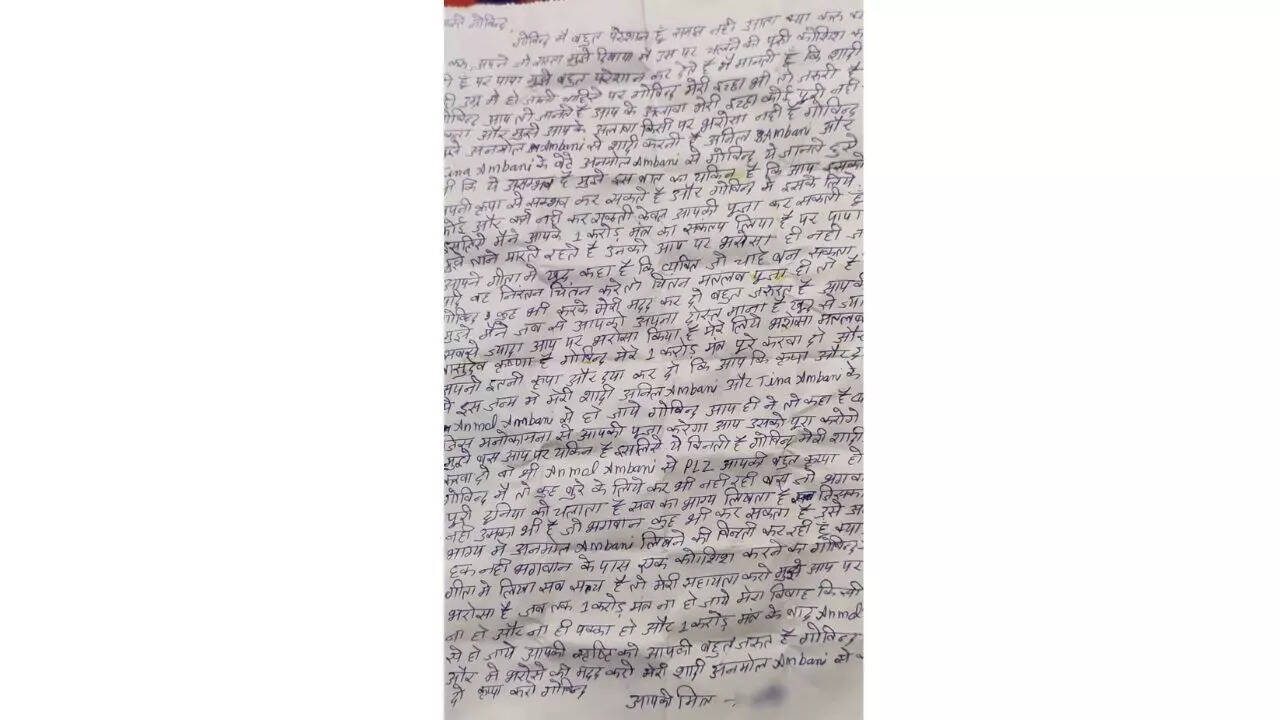 गोविन्द
गोविन्द मैं बहुत परेशान हूँ समझ नही आता क्या करू
आपने जो रास्ता मुझे दिखाया मैं उस पर चलने की पूरी कोशिश
है पर पापा मुझे बहुत परेशान कर देते है मैं मानती हूँ कि शादी
उम्र मे हो जानी चाहिये पर गोविन्द मेरी इच्छा भी तो जरूरी है
गोविन्द आप तो जानते है आप के अलावा मेरी इच्छा कोई पूरी नही
और मुझे आपके अलावा किसी पर भरोसा नही है गोविन्द
अनमोल Ambani से शादी करनी है अनिल Ambani और
Tina Ambani के बेटे अनमोल Ambani से गोविन्द ये जानते हुये
कि ये असम्भव है मुझे इस बात का यकिन है कि आप इसको
अपनी कृपा से सम्भव कर सकते है और गोविन्द मैं इसके लिये
कोई और कर्म नही कर सकती केवल आपकी पूजा कर सकती हूँ
इसलिये मैंने आपके 1 करोड़ मंत्र का संकल्प लिया है पर पापा
मुझे ताने मारते रहते है उनको आप पर भरोसा ही नही
आपने गीता मे खुद कहा है कि व्यक्ति जो चाहे बन सकता
यदि वह निरंतन चिंतन करे तो चिंतन मतलब पूजा ही तो है
गोविन्द कुछ भी करके मेरी मदद कर दो बहुत जरूरत है आपकी
मुझे, मैंने जब से आपको अपना दोस्त माना है खुद से
सबसे ज्यादा आप पर भरोसा किया है मेरे लिये भरोसा मतलब
वासुदेव कृष्णा है गोविन्द मेरे 1 करोड़ मंत्र पूरे करवा दो और
अपनी इतनी कृपा और दया कर दो कि आप कि कृपा और
से इस जन्म मे मेरी शादी अनिल Ambani और Tina Ambani के
Anmol Ambani से हो जाये गोविन्द आप ही ने तो कहा है
जिस मनोकामना से आपकी पूजा करेगा आप उसको पूरा करोगे
मुझे बस आप पर यकिन है इसलिये ये विनती है गोविन्द मेरी शादी
करवा दो वो भी Anmol Ambani से PLZ आपकी बहुत कृपा
गोविन्द मैं तो कुछ बुरे के लिये कर भी नही रही बस जो भगवान
पूरी दुनिया को चलाता है सब का भाग्य लिखता है जिसका
नही उसका भी है जो भगवान कुछ भी कर सकता है उसे
भाग्य मे अनमोल Ambani लिखने की विनती कर रही हूँ क्या
हक नही भगवान के पास एक कोशिश करने का गोविन्द
गीता मे लिखा सब सत्य है तो मेरी सहायता करो मुझे आप पर
भरोसा है जब तक 1 करोड़ मंत्र ना हो जाये मेरा विवाह किसी
ना हो और ना ही पक्का हो और 1 करोड़ मंत्र के बाद Anmol
से हो जाये आपकी सृष्टि को आपकी बहुत जरूत है गोविन्द
और मे भरोसे की मदद करो मेरी शादी अनमोल Ambani से
दो कृपा करो गोविन्द
आपकी मित्र